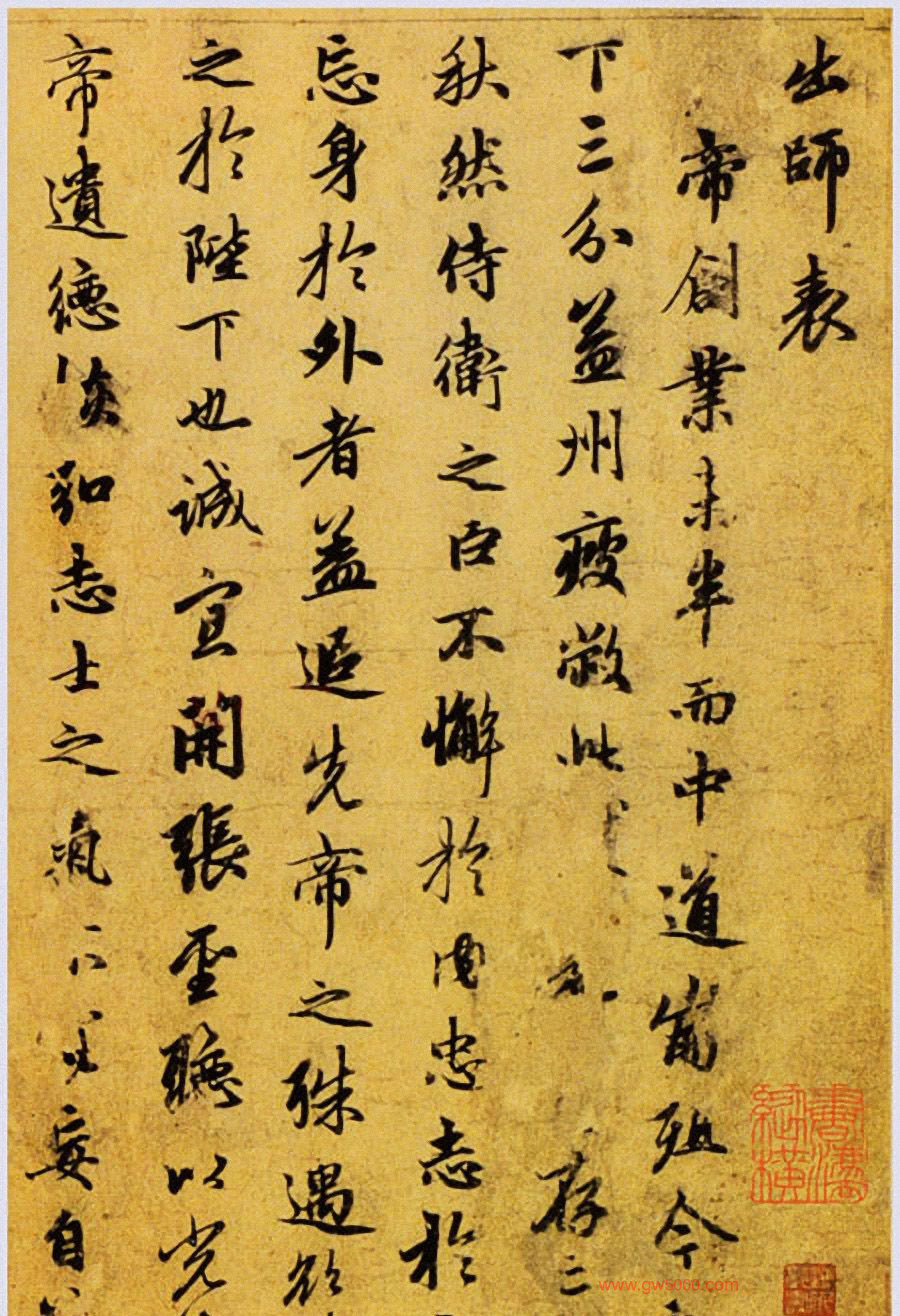 出師表
帝創業未半而中道崩殂今
下三分益州疲敝此存
秋然侍衛之臣不懈於內忠志於
忘身於外者蓋追先帝之殊遇欲
之於陛下也誠宜開張聖聽以光
帝遺德恢弘志士之氣不宜妄自